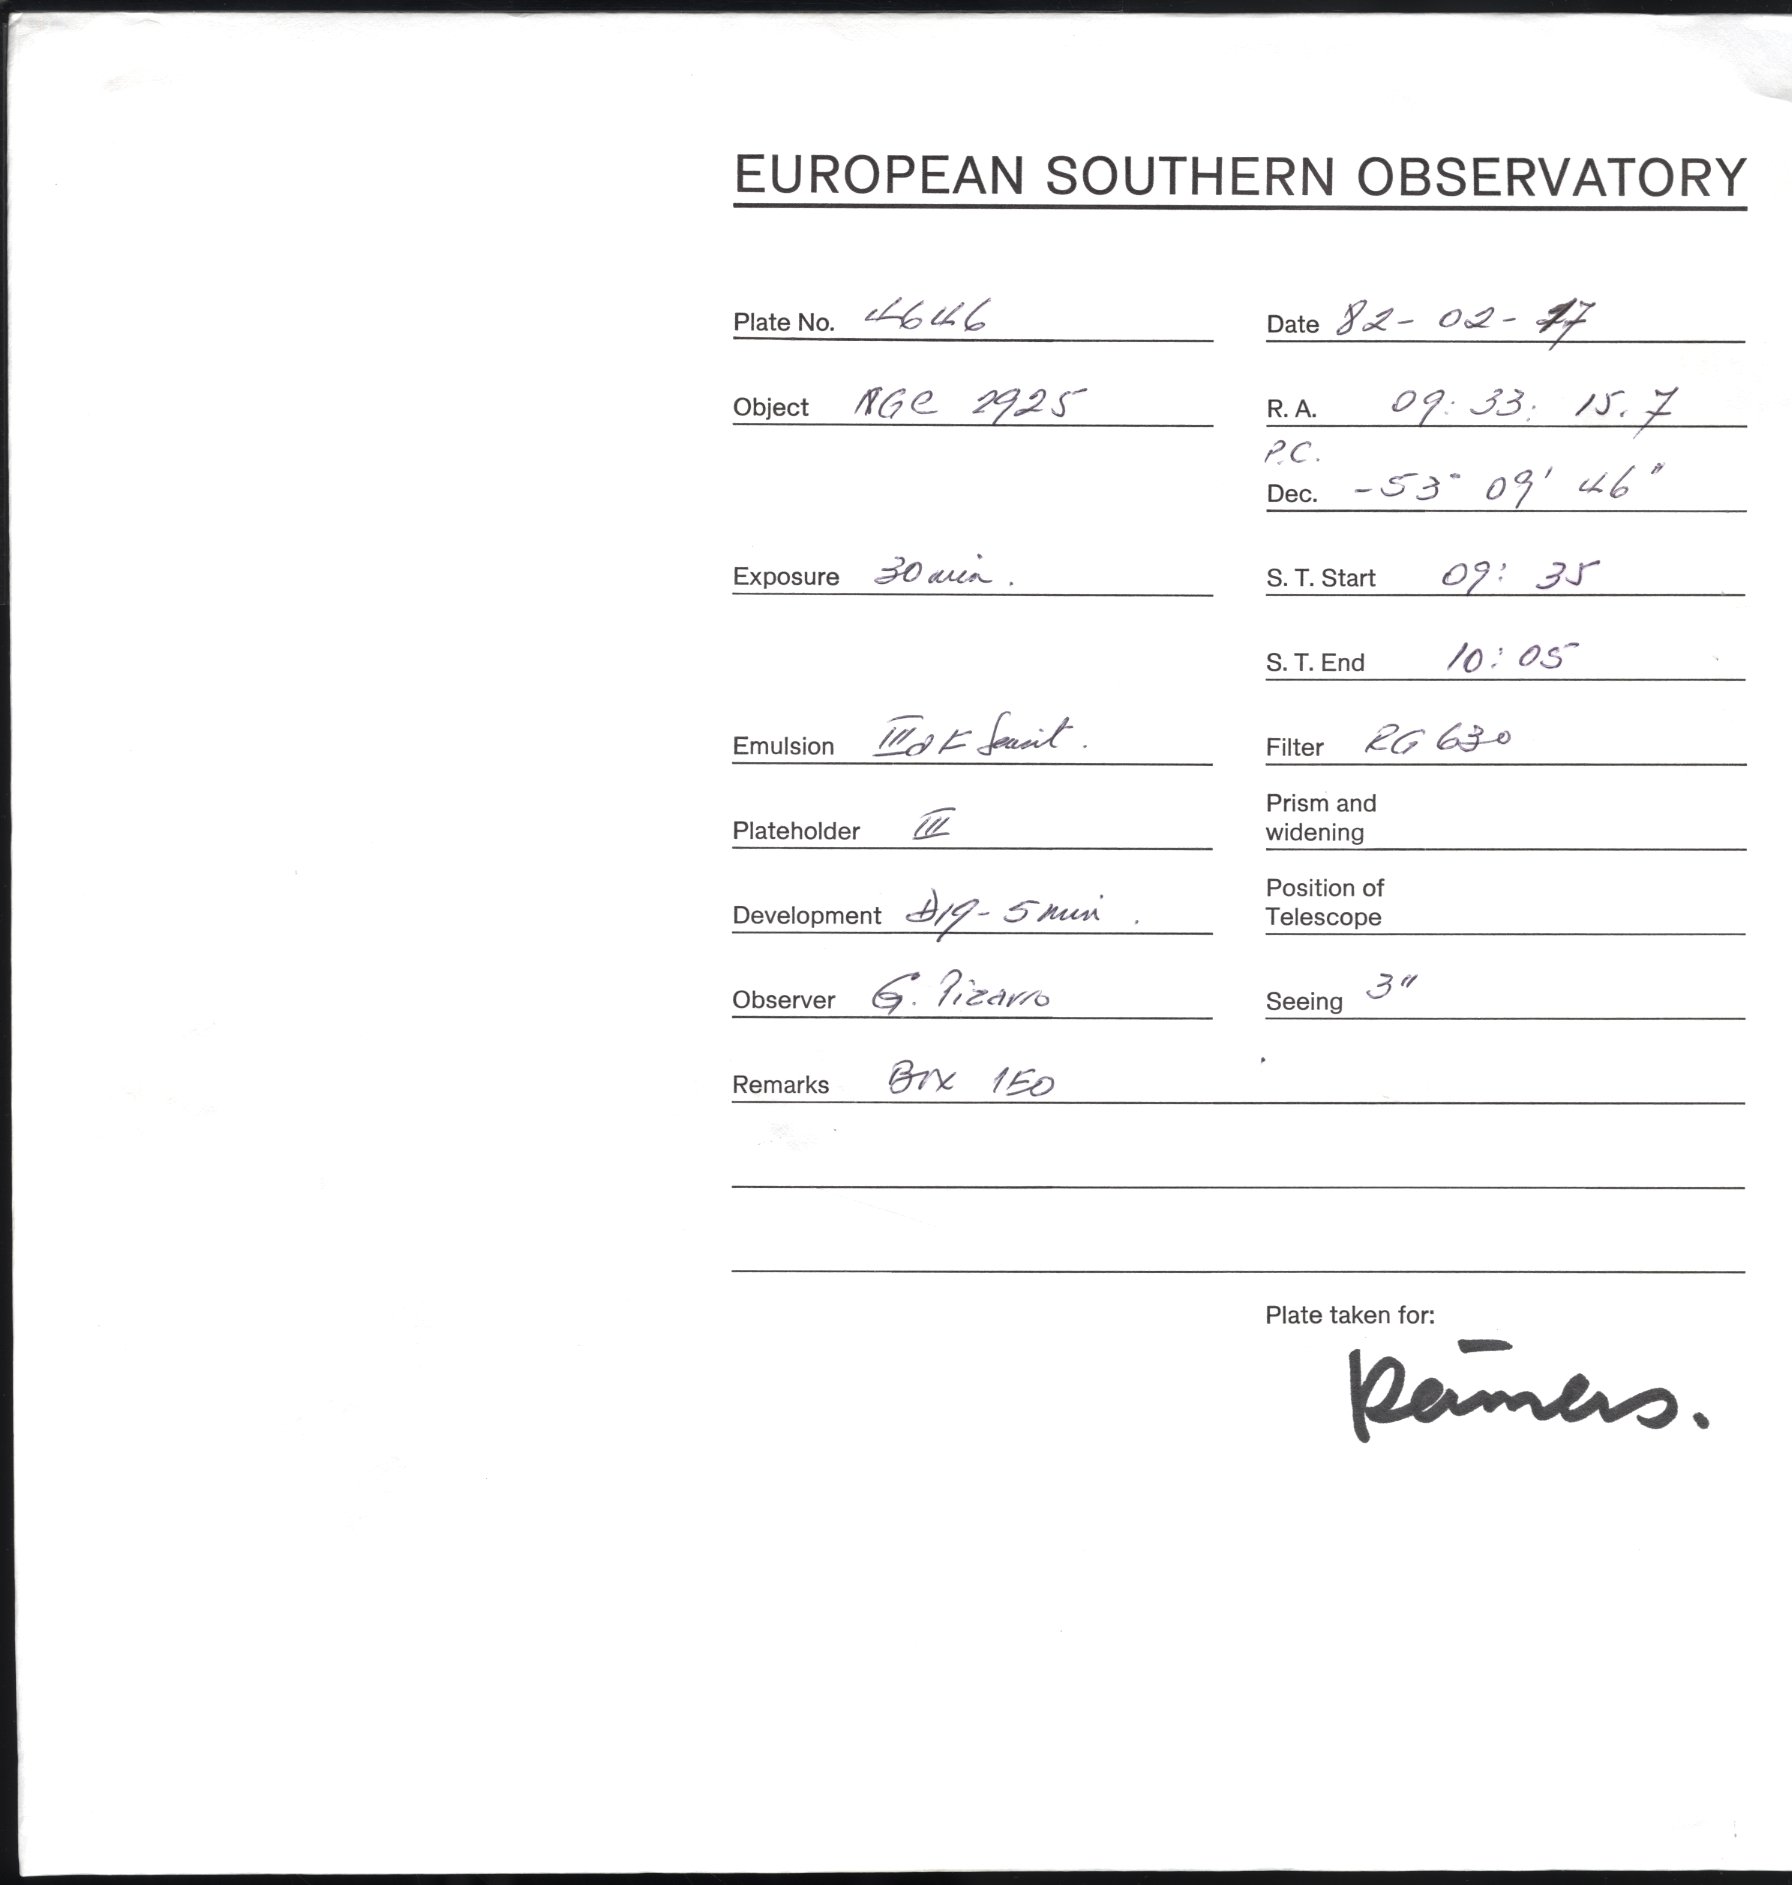 EUROPEAN SOUTHERN OBSERVATORY
Plate No. 4646 Date 82-02-17
Object NGC 2925 R. A. 09: 33: 15.7
P.C.
Dec. -53° 09' 46"
Exposure 30 min. S. T. Start 09: 35
S. T. End 10: 05
Emulsion IIIaF Sensit. Filter RG 630
Plateholder III Prism and widening
Development D19 - 5 min. Position of Telescope
Observer G. Pizarro Seeing 3"
Remarks Box 150
Plate taken for: